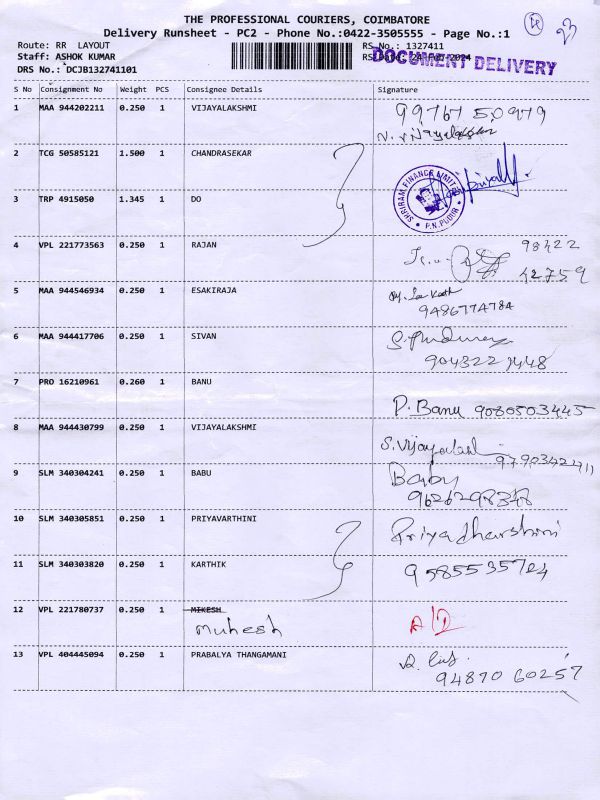 THE PROFESSIONAL COURIERS, COIMBATORE
Delivery Runsheet - PC2 - Phone No.:0422-3505555 - Page No.:1
Route: RR LAYOUT
RS No.: 1327411
Staff: ASHOK KUMAR
DOCUMENT DELIVERY
DRS No.: DCJB132741101
S No Consignment No Weight PCS Consignee Details Signature
1 MAA 944202211 0.250 1 VIJAYALAKSHMI
2 TCG 50585121 1.500 1 CHANDRASEKAR
SHRIRAM FINANCE LIMITED
P.N.PUDUR
3 TRP 4915050 1.345 1 DO
4 VPL 221773563 0.250 1 RAJAN 98422
42759
5 MAA 944546934 0.250 1 ESAKIRAJA
9486774784
6 MAA 944417706 0.250 1 SIVAN
7 PRO 16210961 0.260 1 BANU
P. Banu 9080503445
8 MAA 944430799 0.250 1 VIJAYALAKSHMI
S. Vijayalash
9790342411
9 SLM 340304241 0.250 1 BABU Baby
10 SLM 340305851 0.250 1 PRIYAVARTHINI Priyadharshini
11 SLM 340303820 0.250 1 KARTHIK
12 VPL 221780737 0.250 1 MIKESH
Muhesh
13 VPL 404445094 0.250 1 PRABALYA THANGAMANI
94870 60257